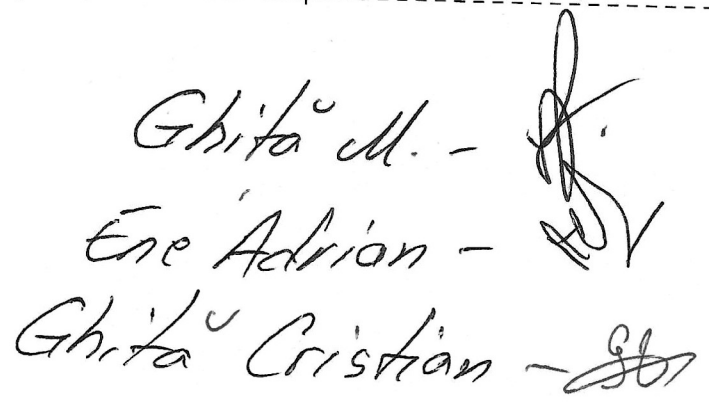 Ghiță M. -
Ene Adrian -
Ghiță Cristian -